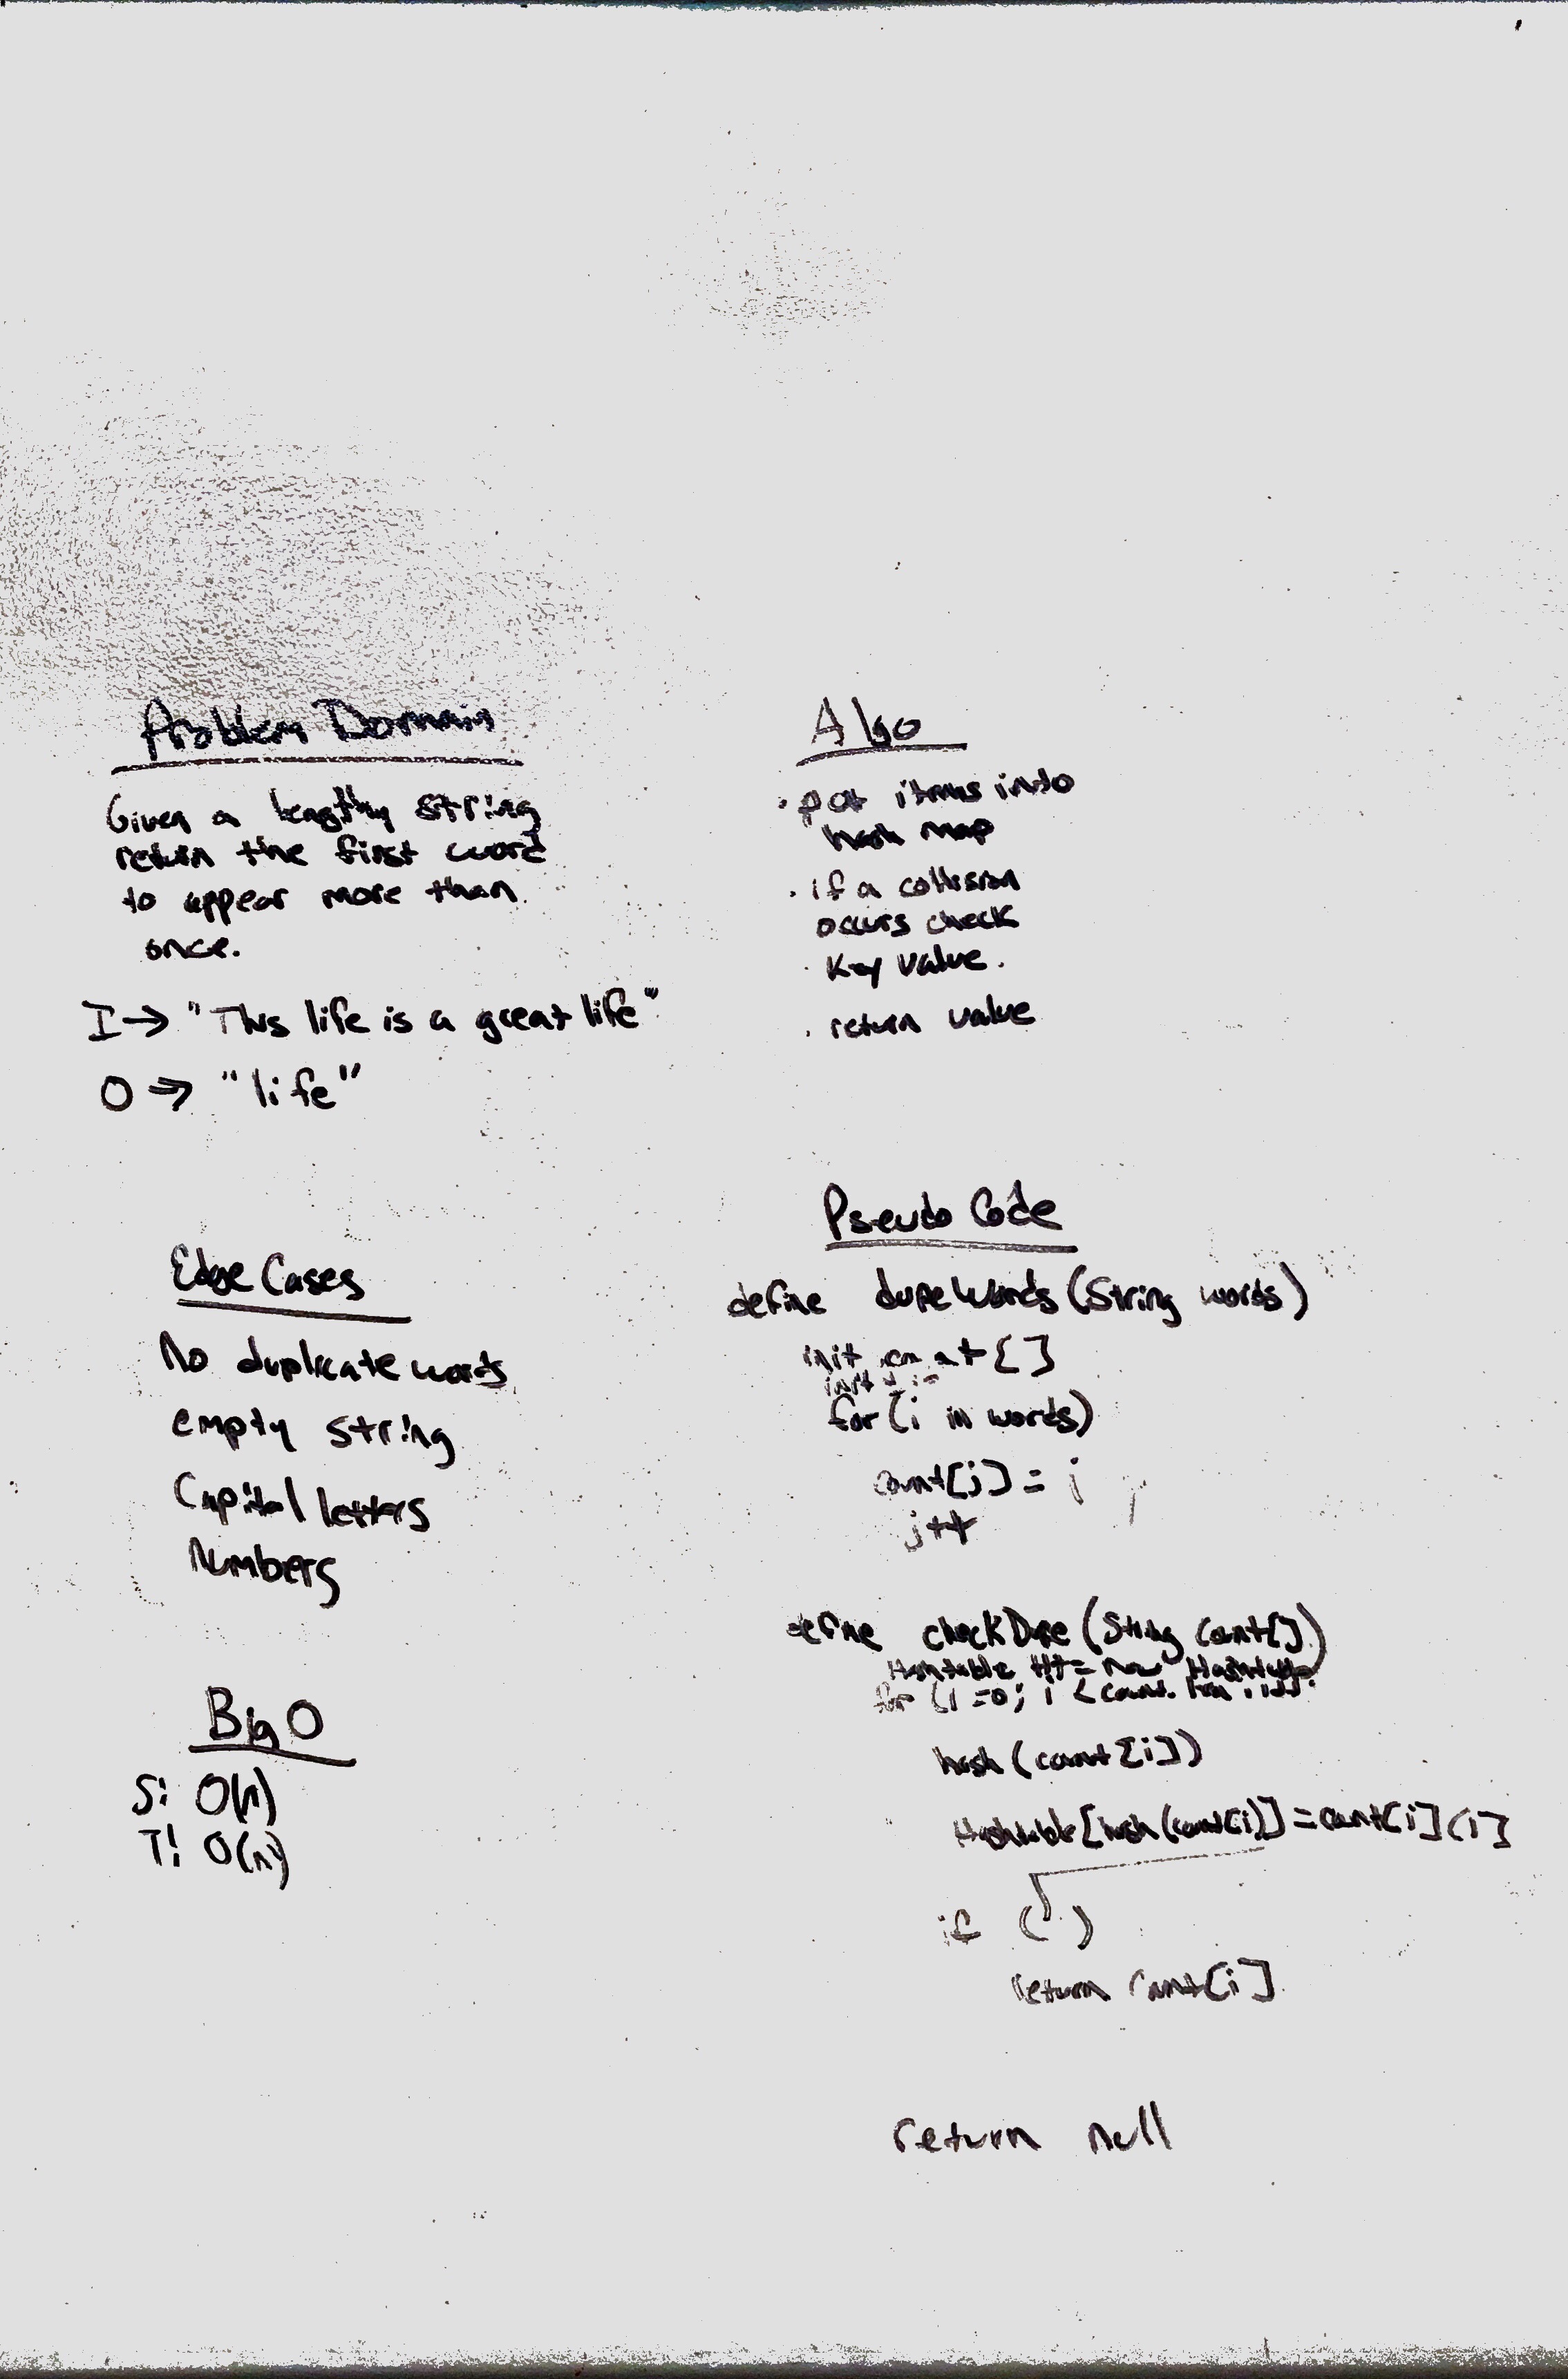 Problem Domain
Given a lengthy string
return the first word
to appear more than
once.
I → "This life is a great life"
O → "life"
Edge Cases
No duplicate words
empty string
Capital letters
Numbers
Big O
S: O(n)
T: O(n)
Algo
· put items into
hash map
· if a collision
occurs check
· Key value.
· return value
Pseudo Code
define dupeWords (String words)
init count []
init
for (i in words)
count[j] = i
j++
define checkDupe (String count[])
Hashtable HT = new Hashtable
for (i=0; i < count.
hash (count[i])
Hashtable[hash(count[i])] = count[i]
if ( )
return count[i]
return null